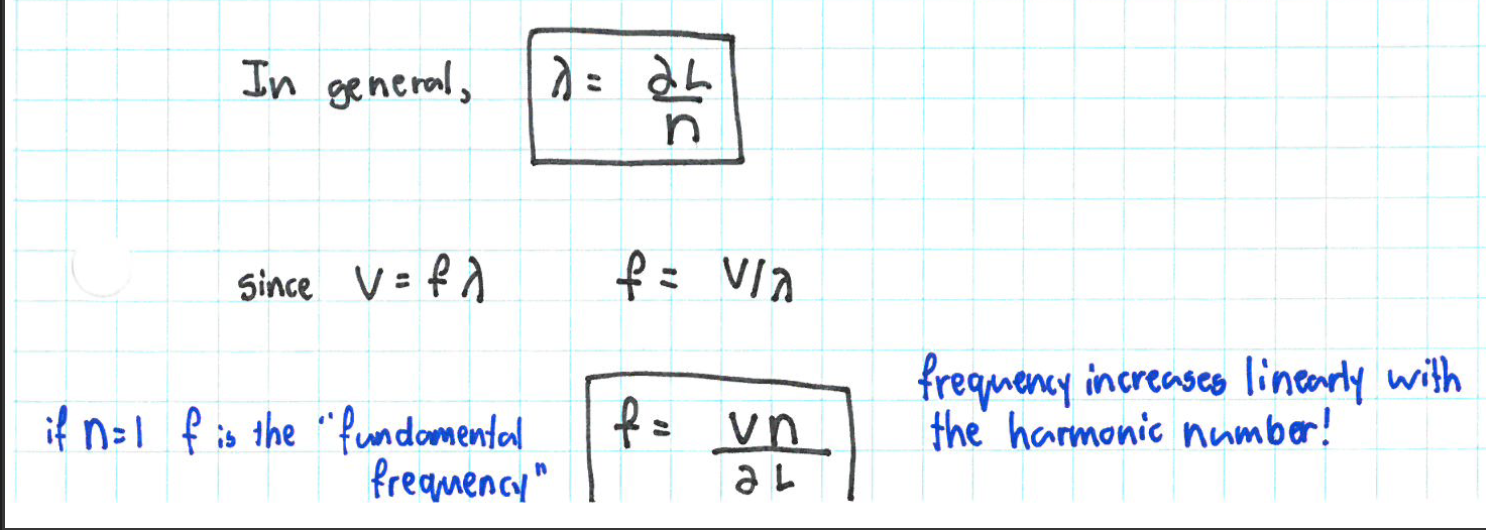 In general, λ = 2L/n
since V = fλ f = V/λ
if n=1 f is the "fundamental frequency"
f = Vn/2L
frequency increases linearly with
the harmonic number!